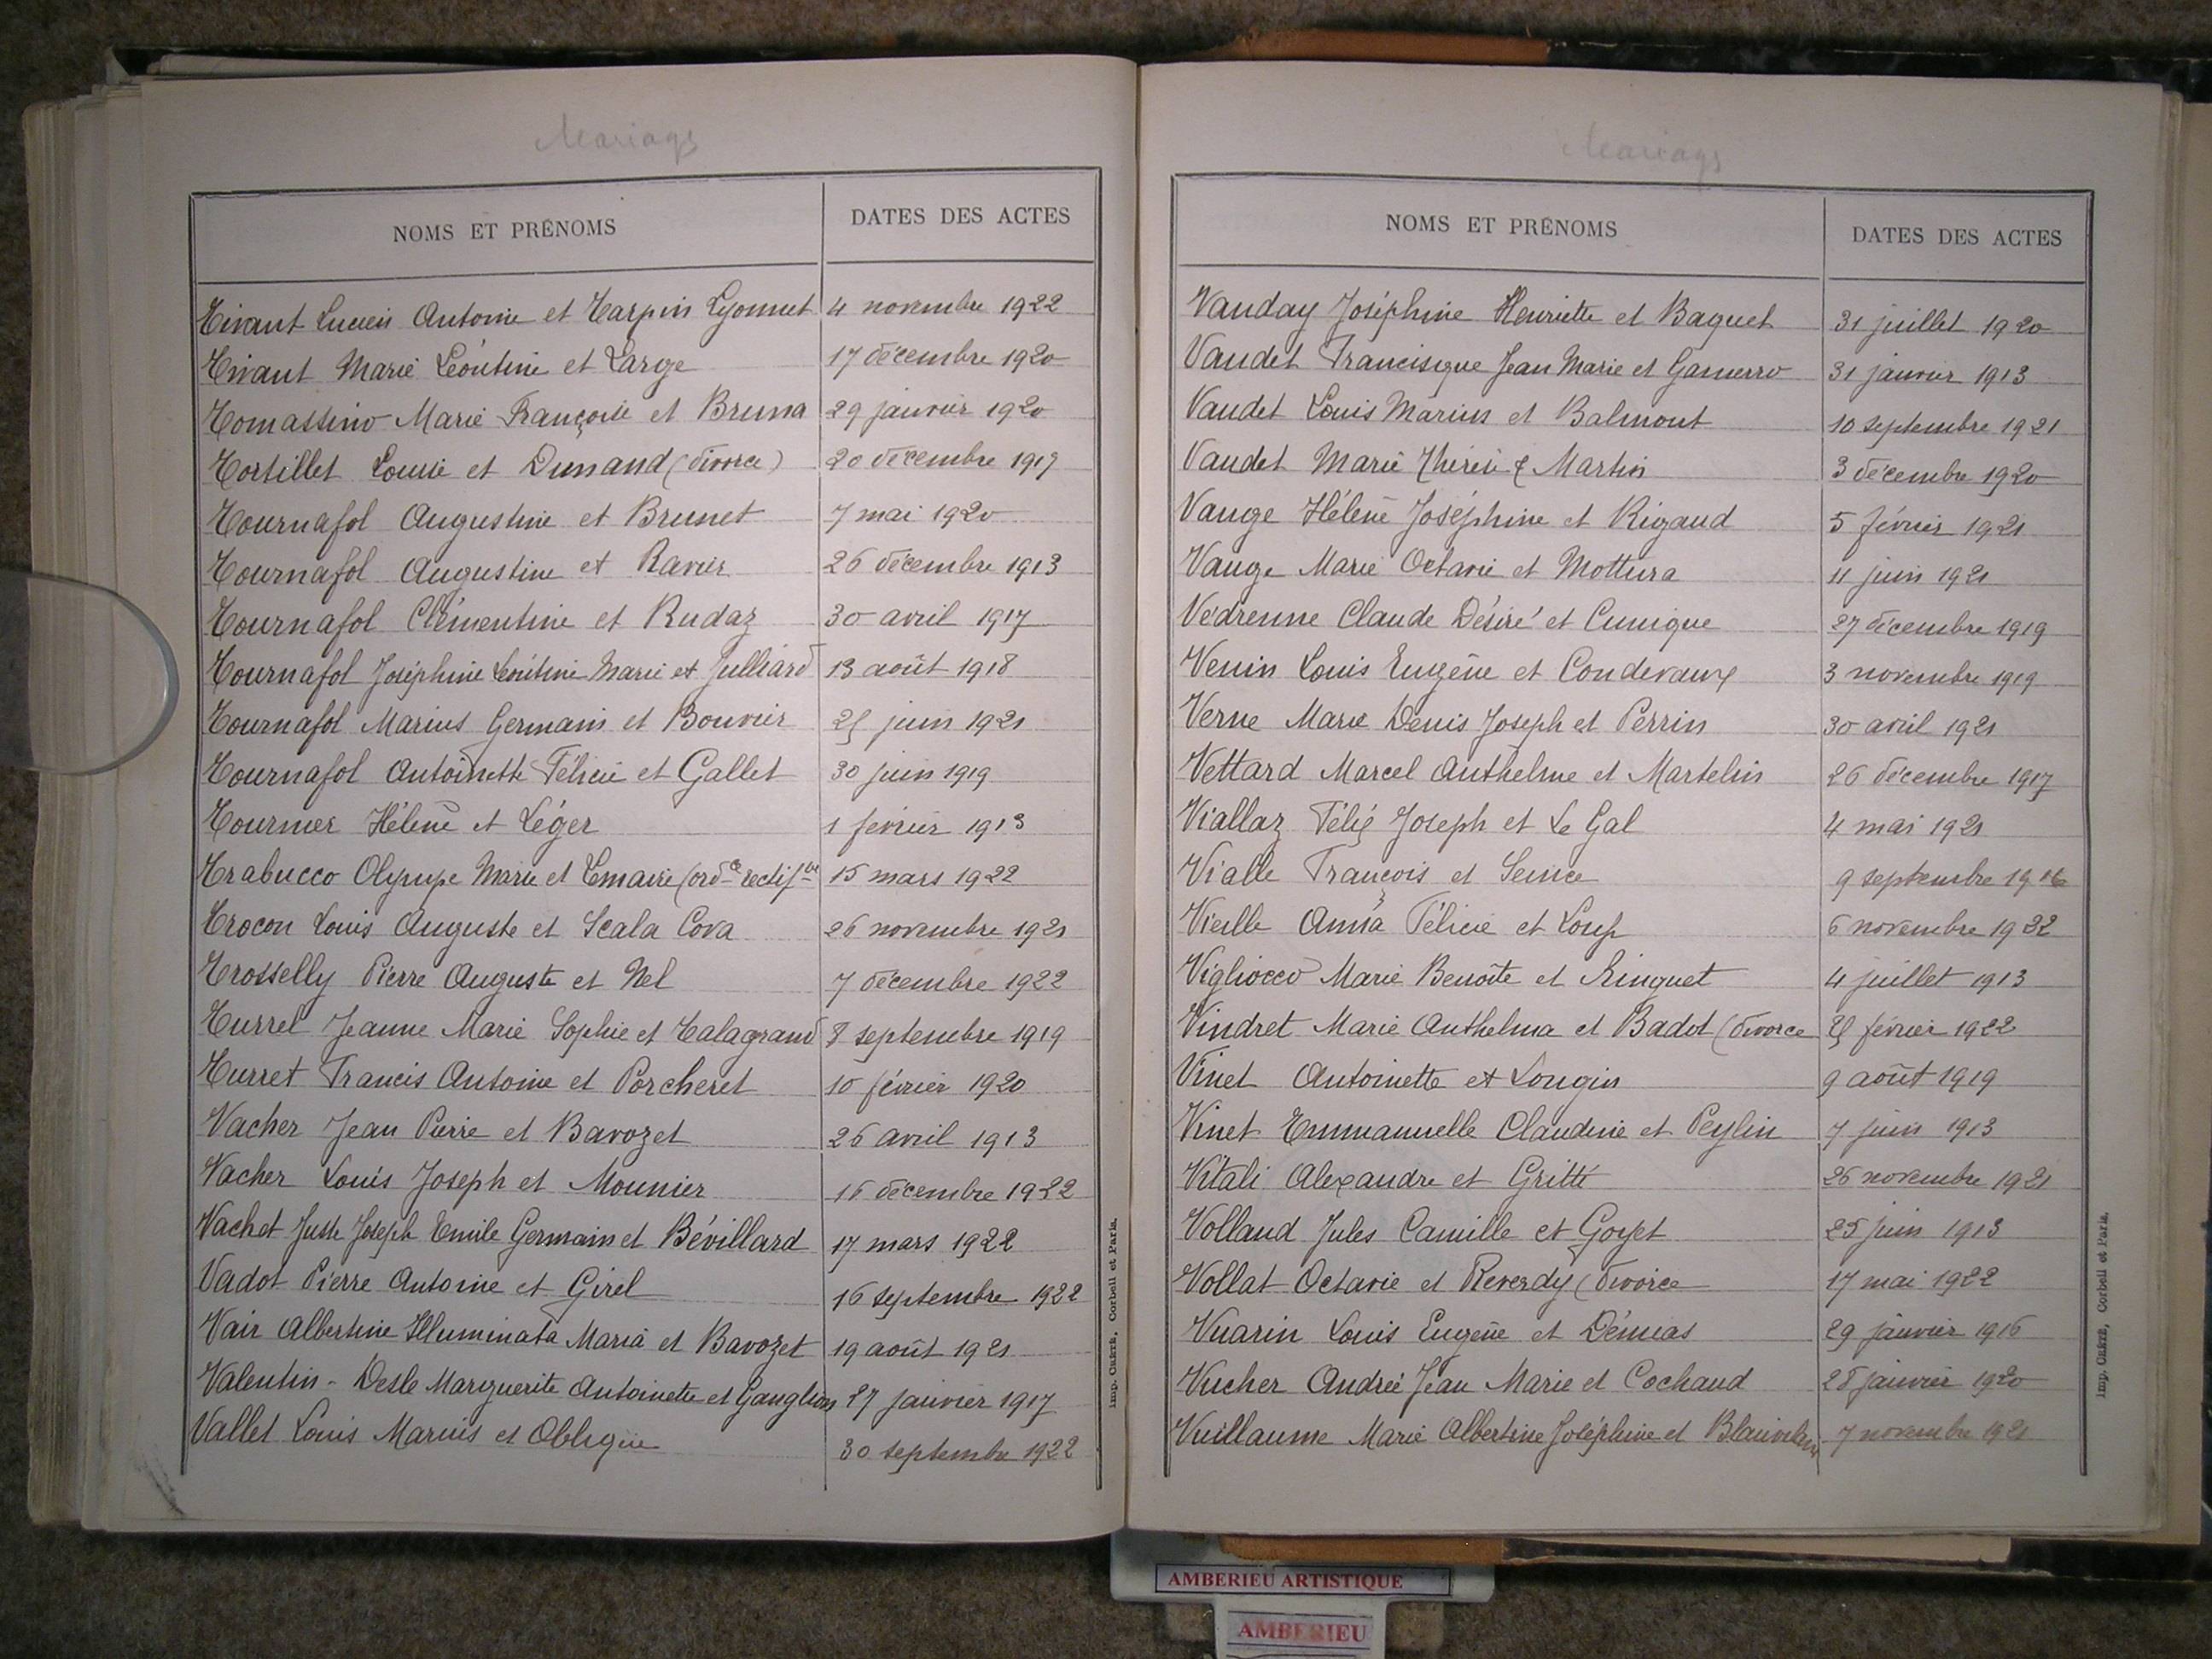 Mariags
NOMS ET PRÉNOMS
DATES DES ACTES
Tivant Lucien Antoine et Tarpin Lyonnet 4 novembre 1922
Tivant Marie Léontine et Large 17 décembre 1920
Tomassino Marie Françoise et Bruna 29 janvier 1920
Tortillet Louise et Dunand (divorce) 20 décembre 1919
Tournafol Augustine et Brunet 7 mai 1920
Tournafol Augustine et Ravier 26 décembre 1913
Tournafol Clémentine et Rudaz 30 avril 1917
Tournafol Joséphine Léontine Marie et Julliard 13 août 1918
Tournafol Marius Germain et Bouvier 25 juin 1921
Tournafol Antoinette Félicie et Gallet 30 juin 1919
Tournier Hélène et Léger 1 février 1913
Trabucco Olympe Marie et Lemaire (ordce rectifve 15 mars 1922
Trocon Louis Auguste et Scala Cova 26 novembre 1921
Trosselly Pierre Auguste et Nel 7 décembre 1922
Turrel Jeanne Marie Sophie et Talagrand 8 septembre 1919
Turret Francis Antoine et Porcheret 10 février 1920
Vacher Jean Pierre et Bavozet 26 avril 1913
Vacher Louis Joseph et Mounier 16 décembre 1922
Vachet Juste Joseph Emile Germain et Bévillard 17 mars 1922
Vadot Pierre Antoine et Girel 16 septembre 1922
Vair Albertine Illuminata Maria et Bavozet 19 août 1921
Valentin-Desle Marguerite Antoinette et Ganglion 27 janvier 1917
Vallet Louis Marius et 30 septembre 1922
Imp. Corbeil et Paris.
Mariags
NOMS ET PRÉNOMS
DATES DES ACTES
Vauday Joséphine Henriette et Baquet 31 juillet 1920
Vaudet Francisque Jean Marie et Gamerro 31 janvier 1913
Vaudet Louis Marius et Balmont 10 septembre 1921
Vaudet Marie Thérèse & Martin 3 décembre 1920
Vauge Hélène Joséphine et Rigaud 5 février 1921
Vauge Marie Octavie et Mottura 11 juin 1921
Védrenne Claude Désiré et Cunique 27 décembre 1919
Venin Louis Eugène et Condevaux 3 novembre 1919
Verne Marie Denis Joseph et Perrin 30 avril 1921
Vettard Marcel Anthelme et Martelin 26 décembre 1917
Viallaz Félix Joseph et Le Gal 4 mai 1921
Vialle François et 9 septembre 1916
Vieille Anna Félicie et Loup 6 novembre 1922
Vigliocco Marie Benoîte et Ringuet 4 juillet 1913
Vindret Marie Anthelma et Badot (divorce 25 février 1922
Vinet Antoinette et Longin 9 août 1919
Vinet Emmanuelle Claudine et Peylin 7 juin 1913
Vitali Alexandre et Gritti 26 novembre 1921
Volland Jules Camille et Goyet 25 juin 1913
Vollat Octavie et Reverdy (divorce 17 mai 1922
Vuarin Louis Eugène et Démias 29 janvier 1916
Vucher Andréé Jean Marie et Cochaud 28 janvier 1920
Vuillaume Marie Albertine Joséphine et 7 novembre 1921
Imp. Corbeil et Paris.
AMBERIEU ARTISTIQUE
AMBERIEU